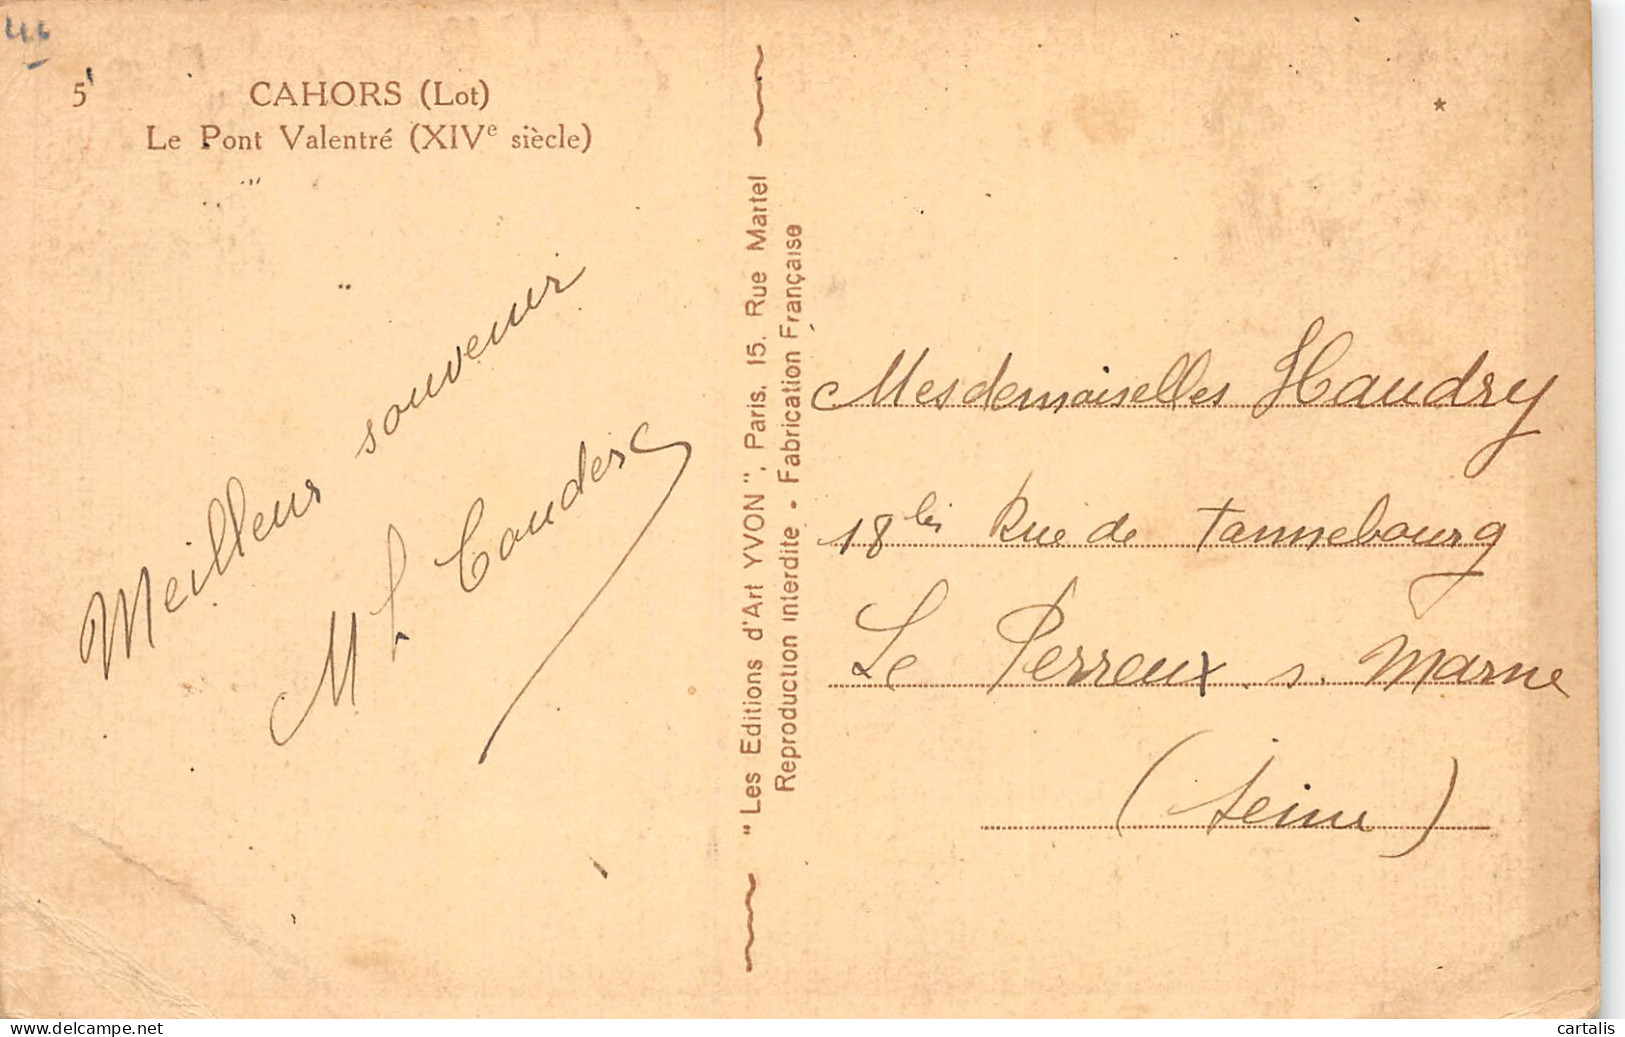 46
5
CAHORS (Lot)
Le Pont Valentré (XIVe siècle)
Meilleur souvenir
" Les Editions d'Art YVON ", Paris. 15. Rue Martel
Reproduction interdite - Fabrication Française
*
Mesdemoiselles Haudry
18 bis Rue de Tannebourg
Le Perreux s. Marne
(Seine)
www.delcampe.net
cartalis